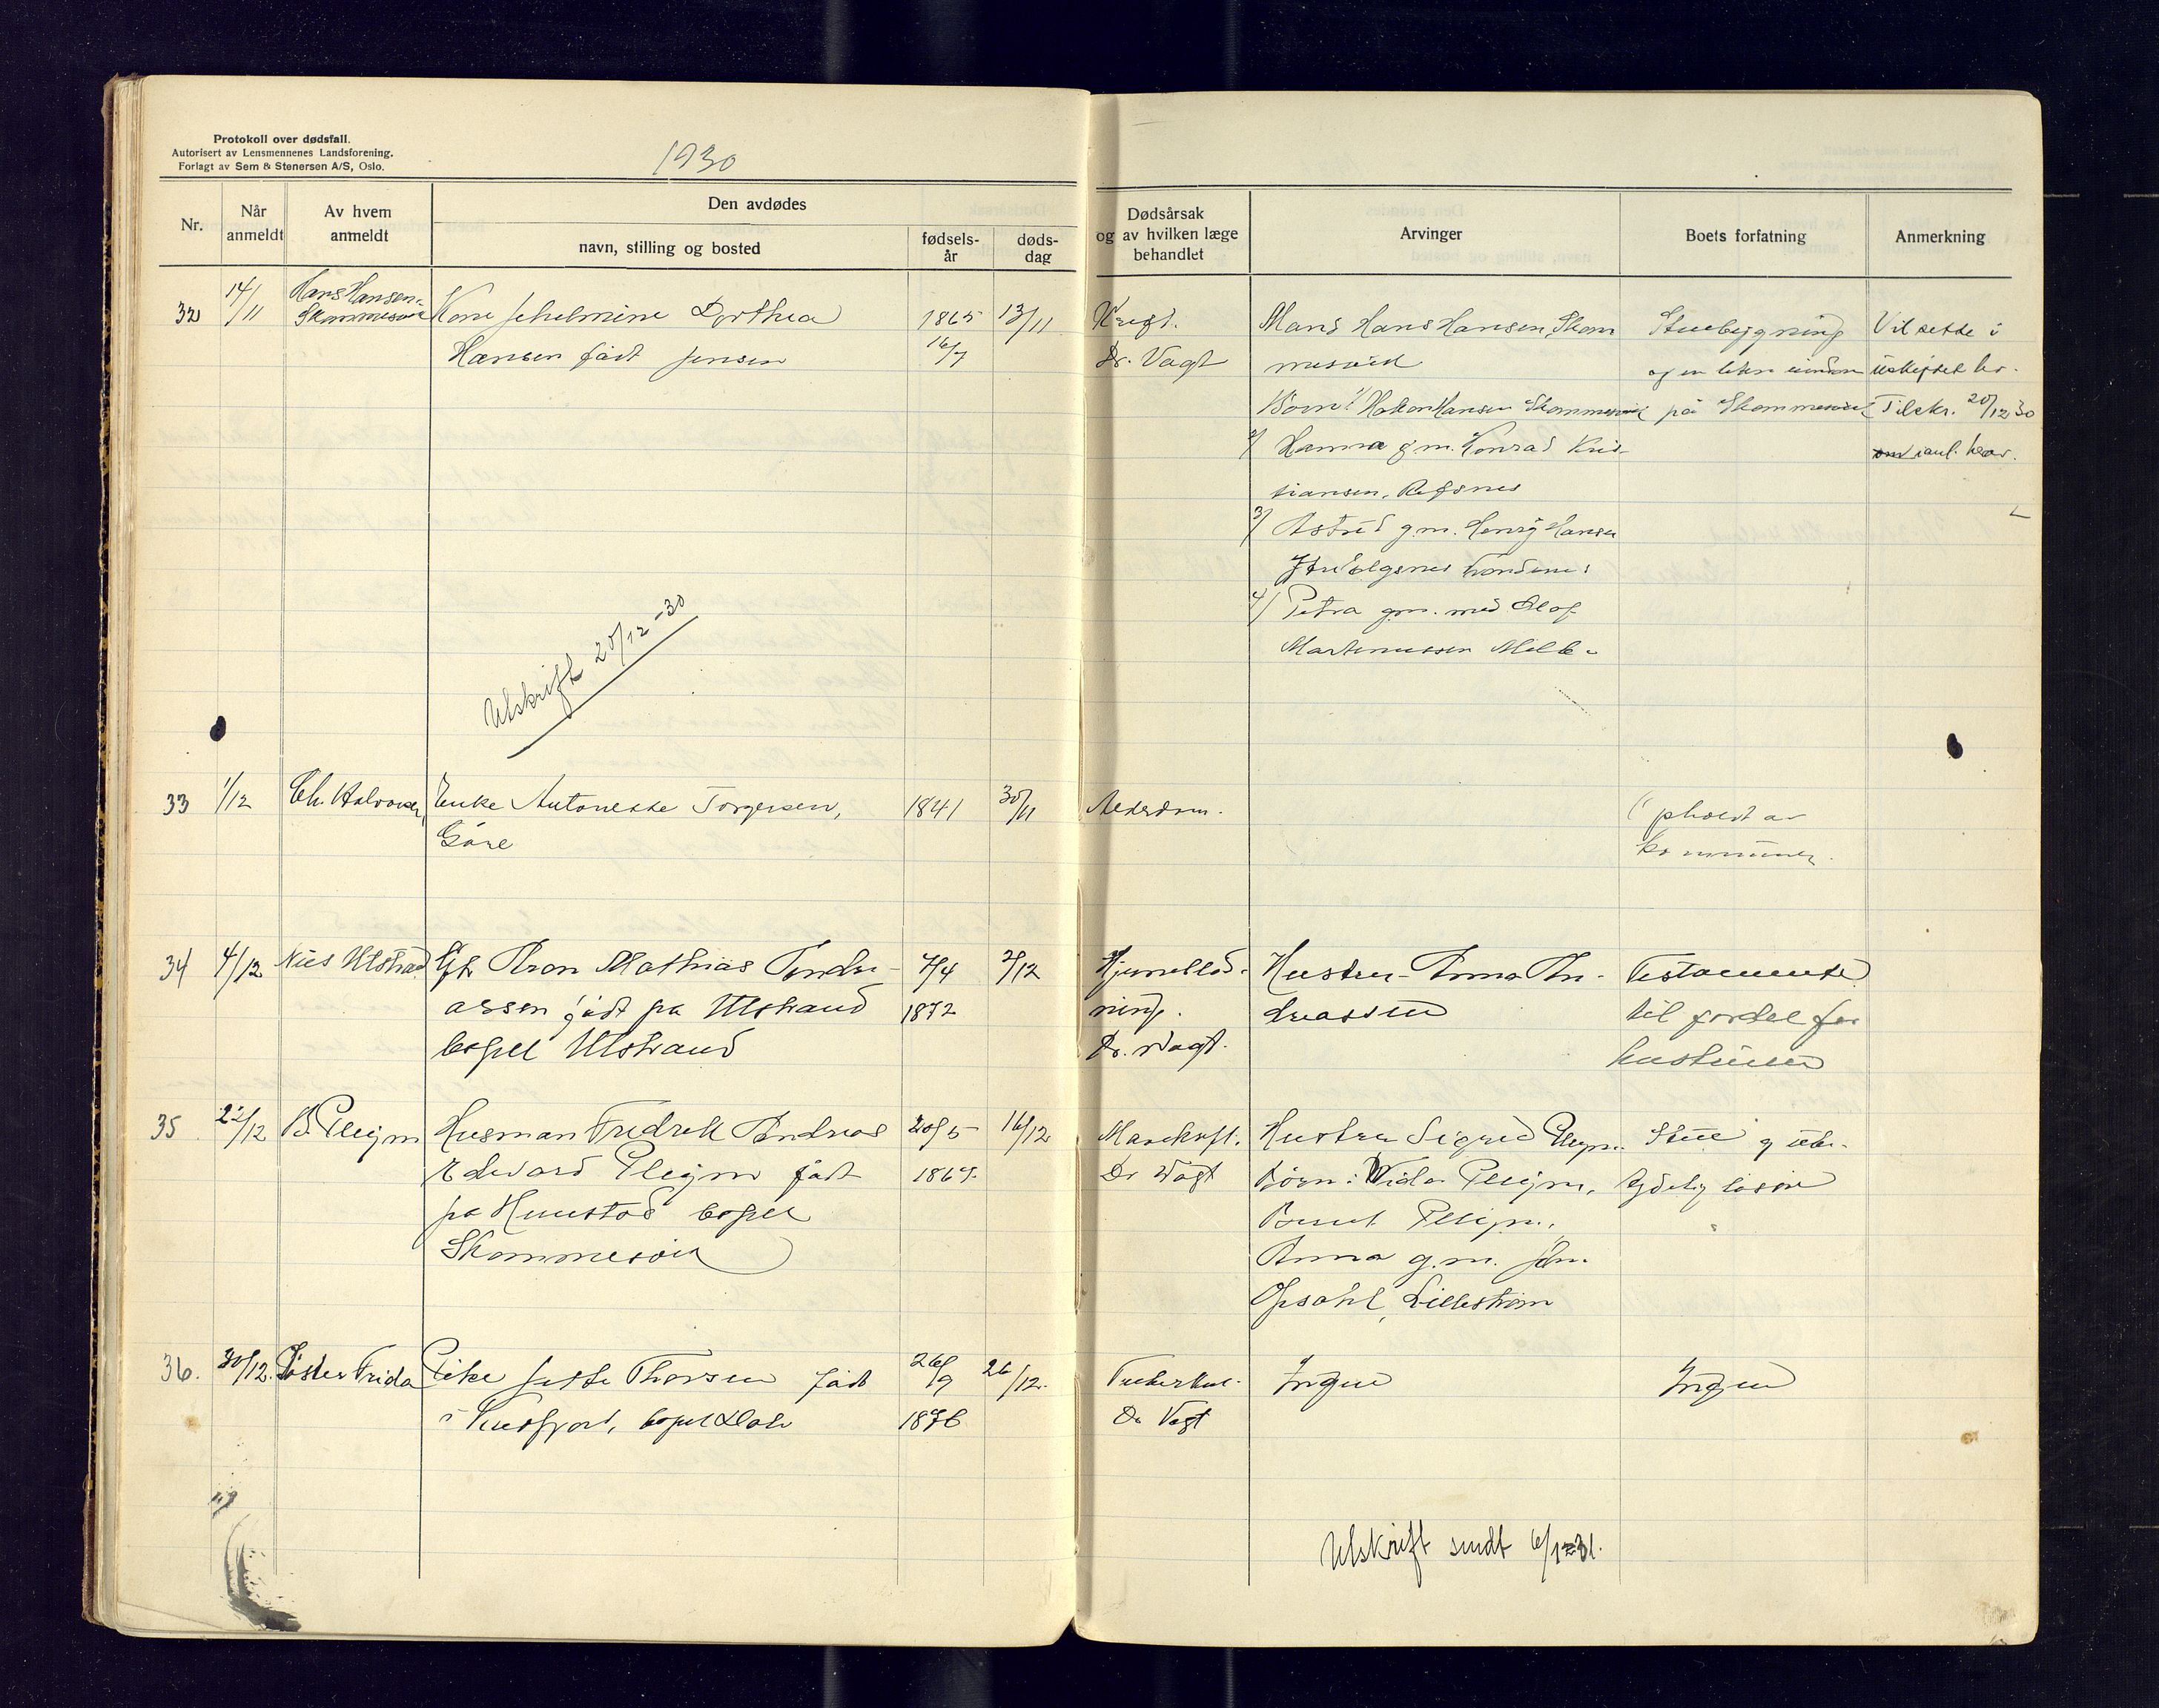 Protokoll over dødsfall.
Autorisert av Lensmennenes Landsforening.
Forlagt av Sem & Stenersen A/S, Oslo.
1930
Nr.
Når
anmeldt
Av hvem
anmeldt
Den avdødes
navn, stilling og bosted
fødsels-
år
døds-
dag
Dødsårsak
og av hvilken læge
behandlet
Arvinger
Boets forfatning
Anmerkning
32
14/11
Hans Hansen
Skommesvik
Kone Jehelmine Dorthea
Hansen født Jensen
1865
16/7
13/11
Kreft.
Dr. Vogt
Mand Hans Hansen, Skom
mesvik
Born 1/ Hakon Hansen Skommesvik
2/ Hanna g.m. Konrad Kris-
tiansen, Refsnes
3/ Astrid g.m. Henry Hansen
Trondenes
4/ Petra gm. med Olof
Martinussen Melb.
Stuebygning
og en liten
på Skommesvik
Vil sitte i
uskiftet bo.
Tilskr. 20/12 30
Utskrift 20/12 - 30
33
1/12
Ch. Halvorsen,
Enke Antonette Torgersen,
1841
30/11
Alderdom.
Opholdt av
kommunen.
34
4/12
Nils Ulstrand
Gbr. Aron Mathias Andre-
assen født på Ulstrand
bopel Ulstrand
7/4
1872
2/12
Hjerneblød-
ning.
Dr. Vogt.
Hustru Anna An-
dreassen
Testamente
til fordel for
hustruen
35
22/12
B. Pleym
Husman Fredrik Andreas
Edvard Pleym født
på Kunstad bopel
Skommesvik
20/5
1865
16/12
Mavekreft.
Dr Vogt
Hustru Sigrid Pleym.
Børn: Vidar Pleym,
Bernt Pleym,
Anna g.m. Joh.
Opsahl, Lillestrøm
Stue og ube-
tydelig løsøre
36.
30/12.
Søster Frida
Pike Jette Thorsen født
i Tusfjord, bopel Dale
26/9
1876
26/12.
Tuberkul.
Dr Vogt
Ingen
Ingen
Utskrift sendt 6/1-31.